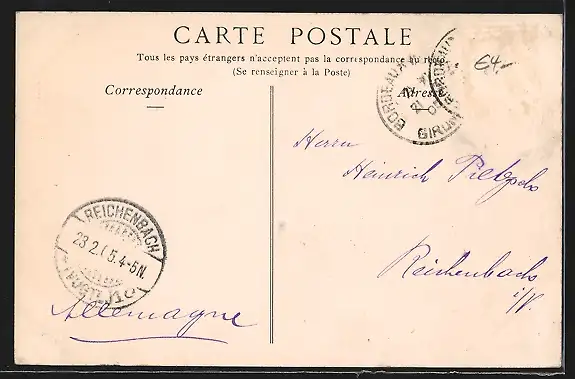 CARTE POSTALE
Tous les pays étrangers n'acceptent pas la correspondance au recto.
(Se renseigner à la Poste)
Correspondance
Adresse
BORDEAUX
GIRONDE
64.-
Herrn
Heinrich
Reichenbach
i/V.
REICHENBACH
23.2.05.4-5N.
Allemagne